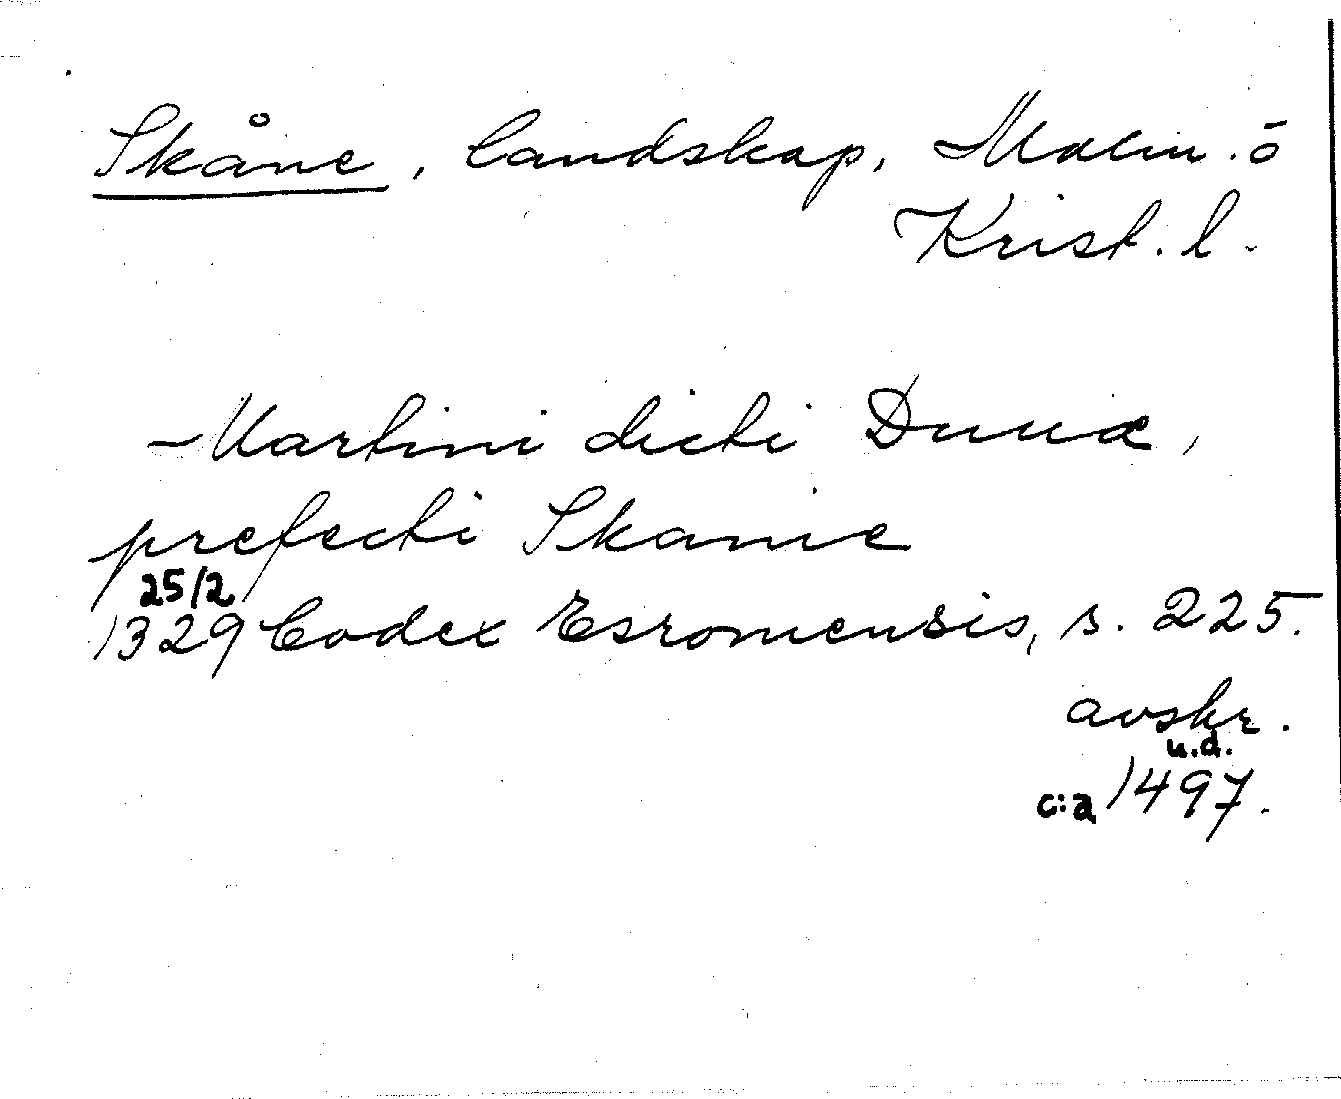 Skåne, landskap, Malm. ö
Krist. l.
Martini dicti Duuæ,
prefecti Skanie
25/2
1329 Codex Esromensis, s. 225.
avskr.
u.d.
c:a 1497.